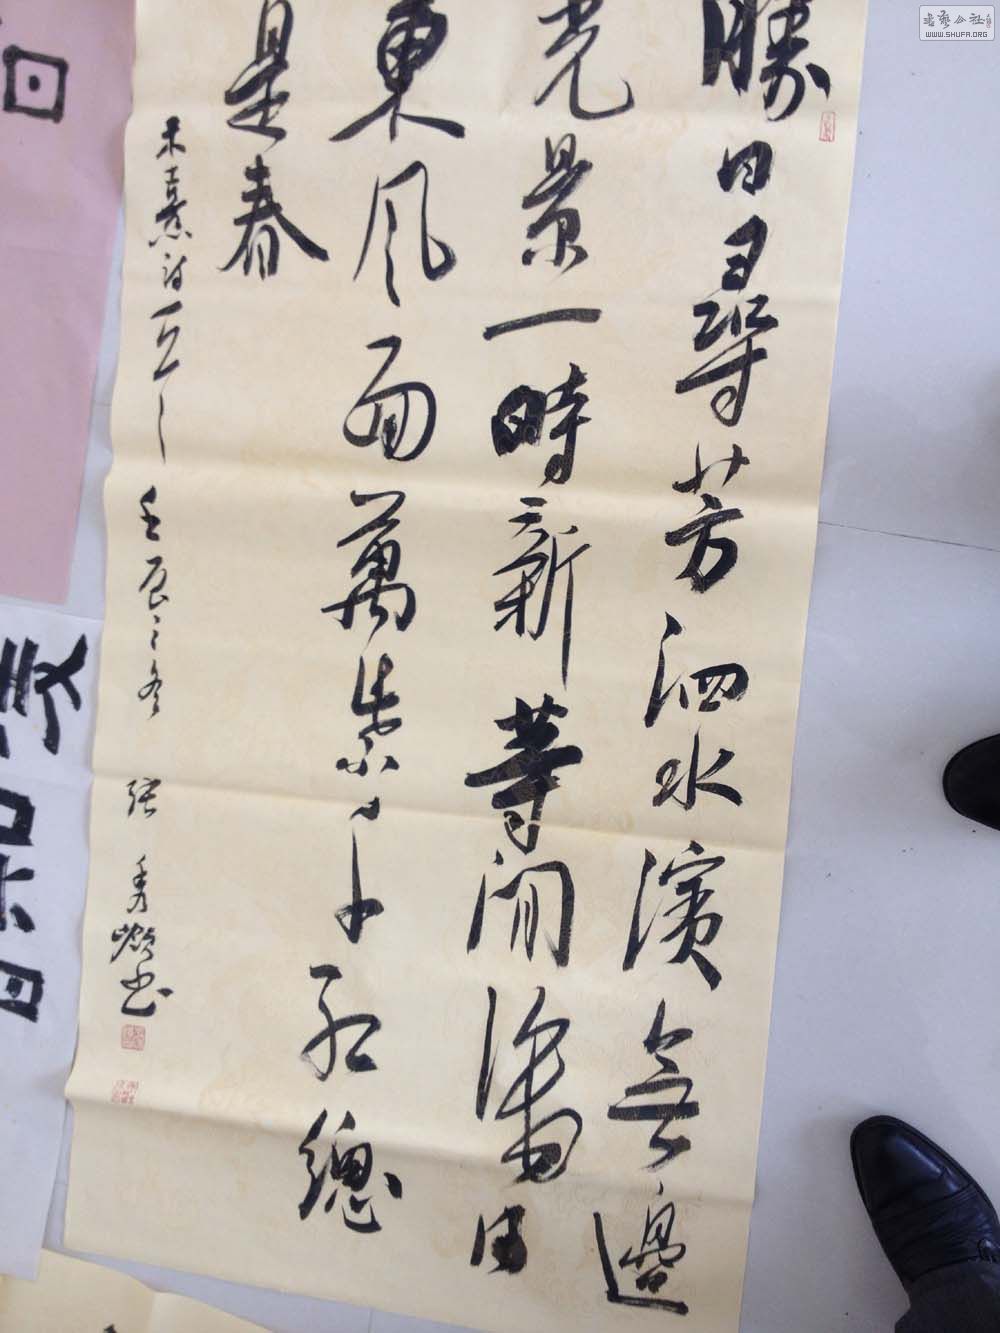 勝日尋芳泗水濱無邊
光景一時新等閒日
東風面萬紫千紅總
是春
朱熹詩一首 壬辰之冬 張秀嶺書
書藝公社
WWW.SHUFA.ORG